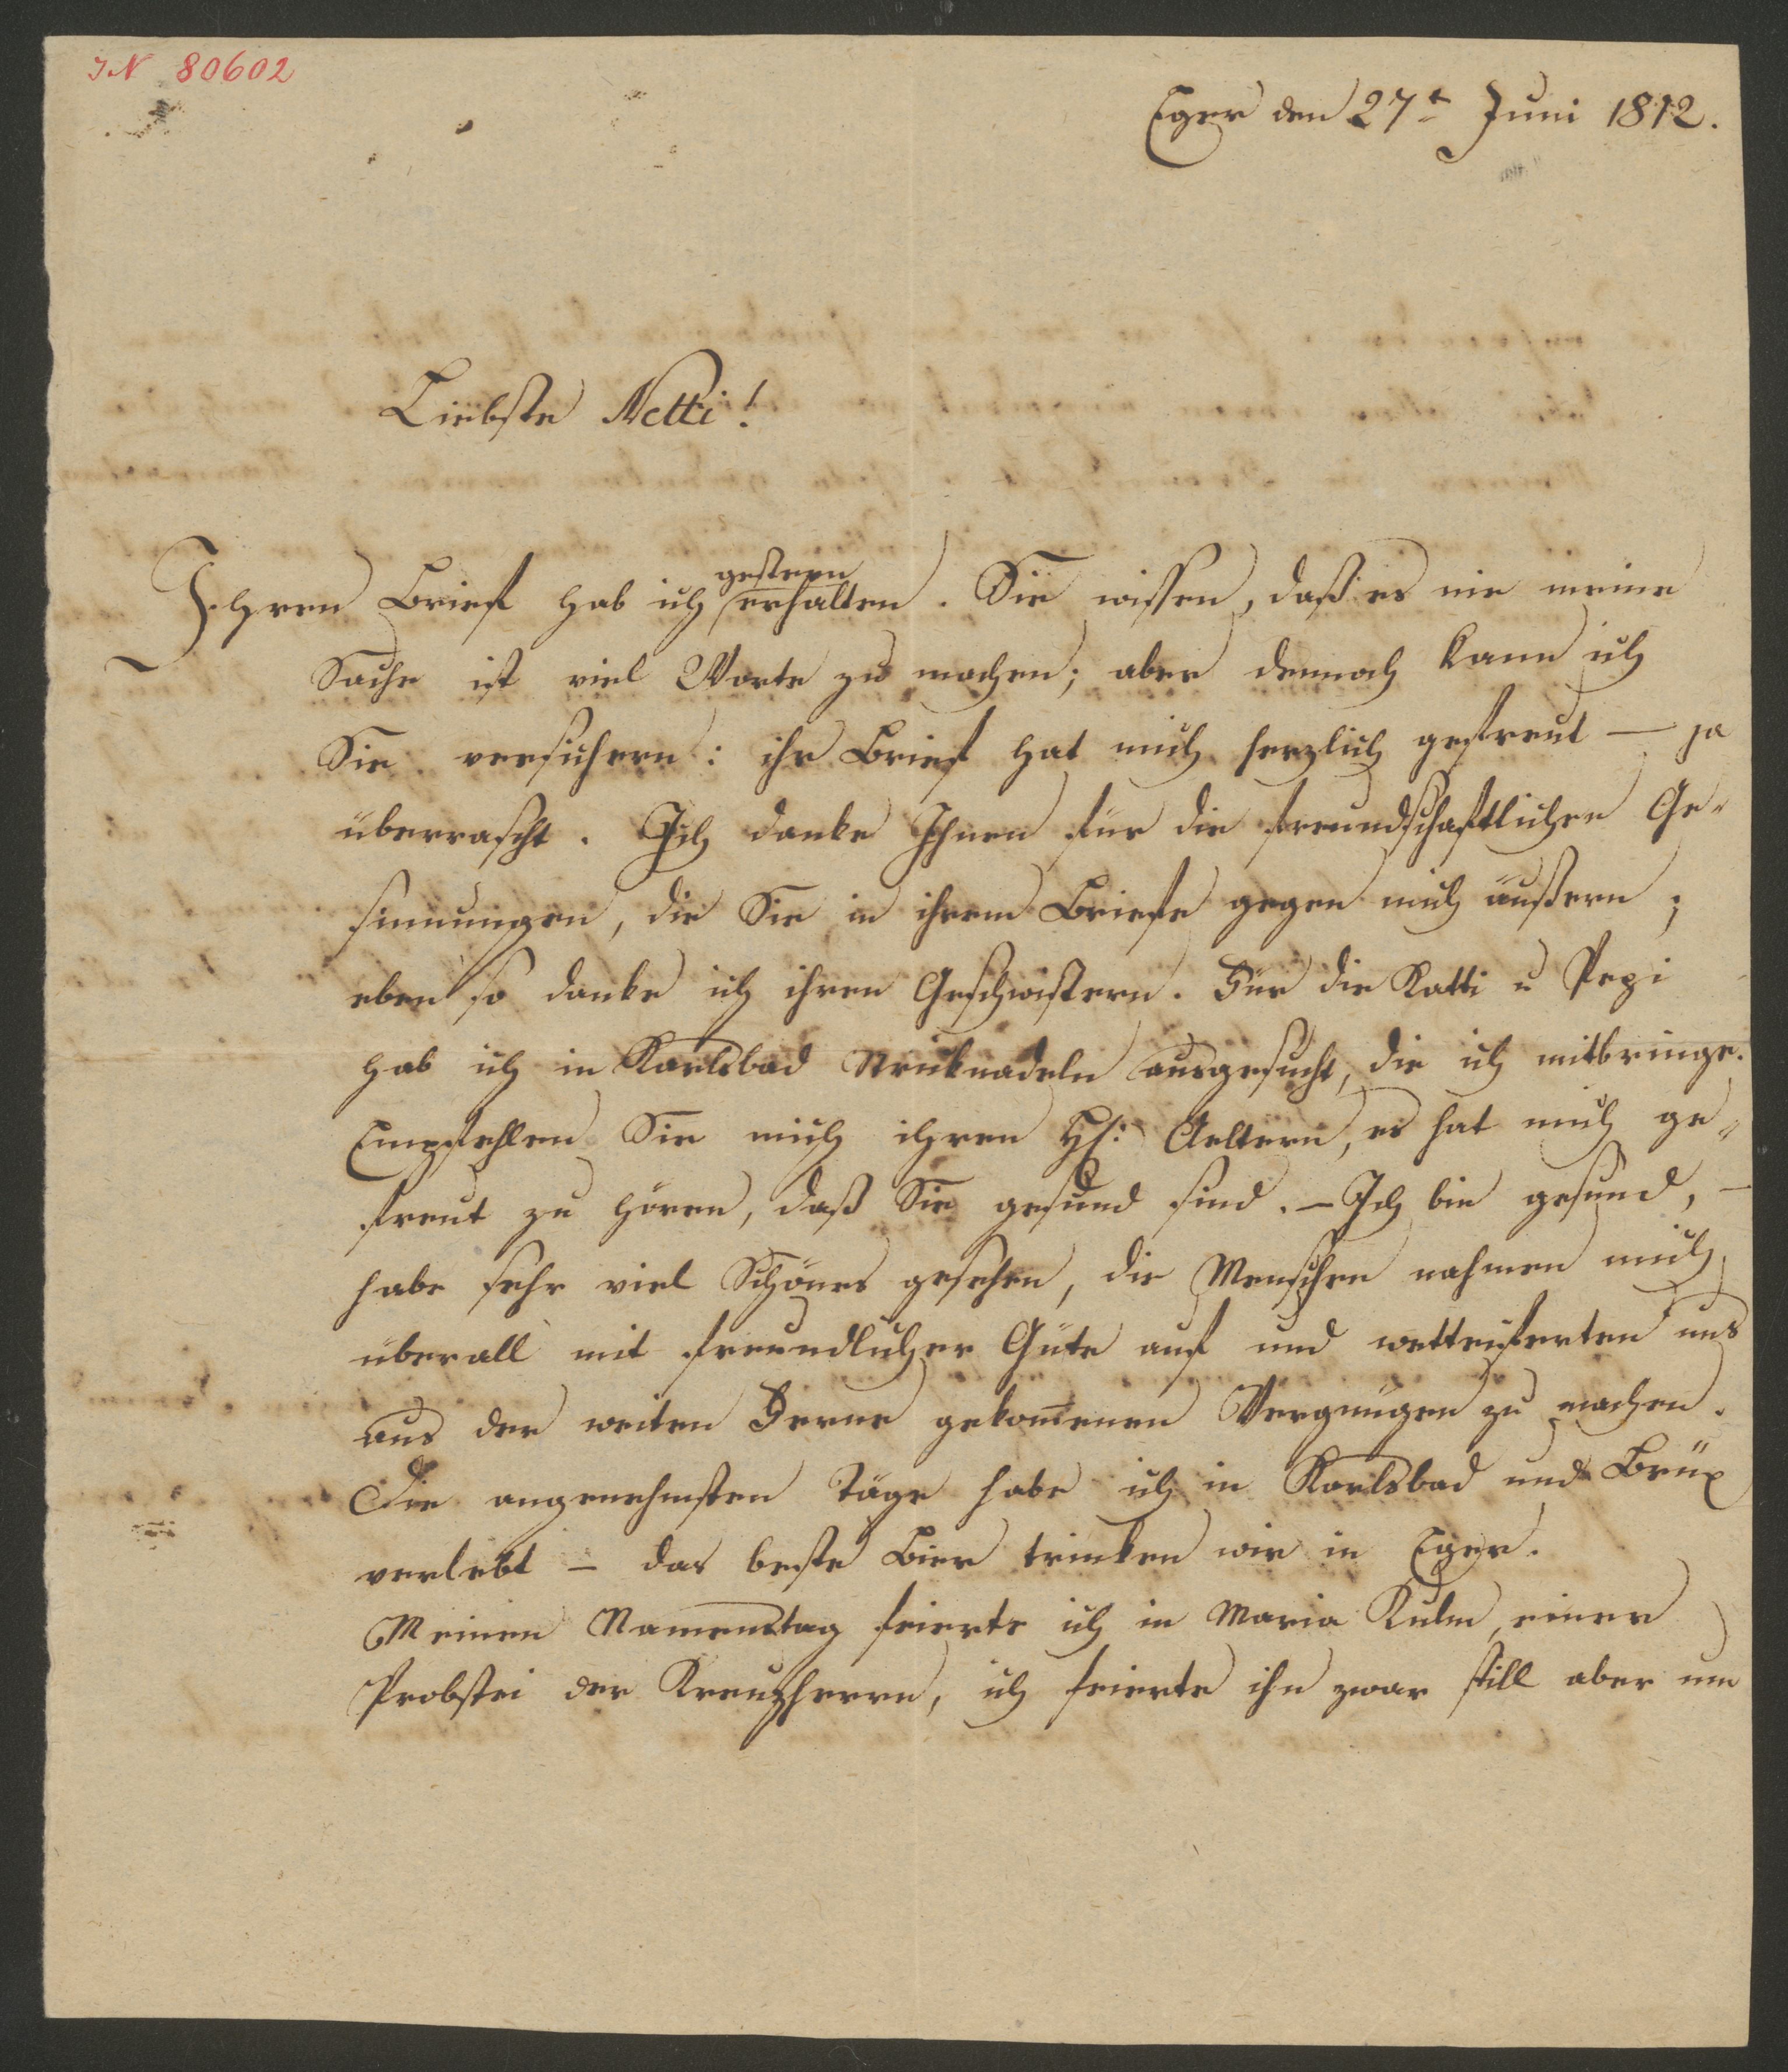 IN 80602
Eger den 27t Juni 1812.
Liebste Netti!
gestern
Ihren Brief hab ich erhalten. Sie wissen, daß es nie meine
Sache ist viel Worte zu machen; aber dennoch kann ich
Sie versichern: ihr Brief hat mich herzlich gefreut — ja
überrascht. Ich danke Ihnen für die freundschaftlichen Ge-
sinnungen, die Sie in ihrem Briefe gegen mich äußern;
eben so danke ich ihren Geschwistern. Für die Katti u Pepi
hab ich in Karlsbad Stricknadeln ausgesucht, die ich mitbringe.
Empfehlen Sie mich ihren H: Aeltern, es hat mich ge-
freut zu hören, daß Sie gesund sind. — Ich bin gesund, —
habe sehr viel Schönes gesehen, die Menschen nahmen mich
überall mit freundlicher Güte auf und wetteiferten uns
aus der weiten Ferne gekom̅enen Vergnügen zu machen.
Die angenehmsten Täge habe ich in Karlsbad und Brüx
verlebt — das beste Bier trinken wir in Eger.
Meinen Namenstag feierte ich in Maria Kulm, einer
Probstei der Kreuzherrn, ich feierte ihn zwar still aber um